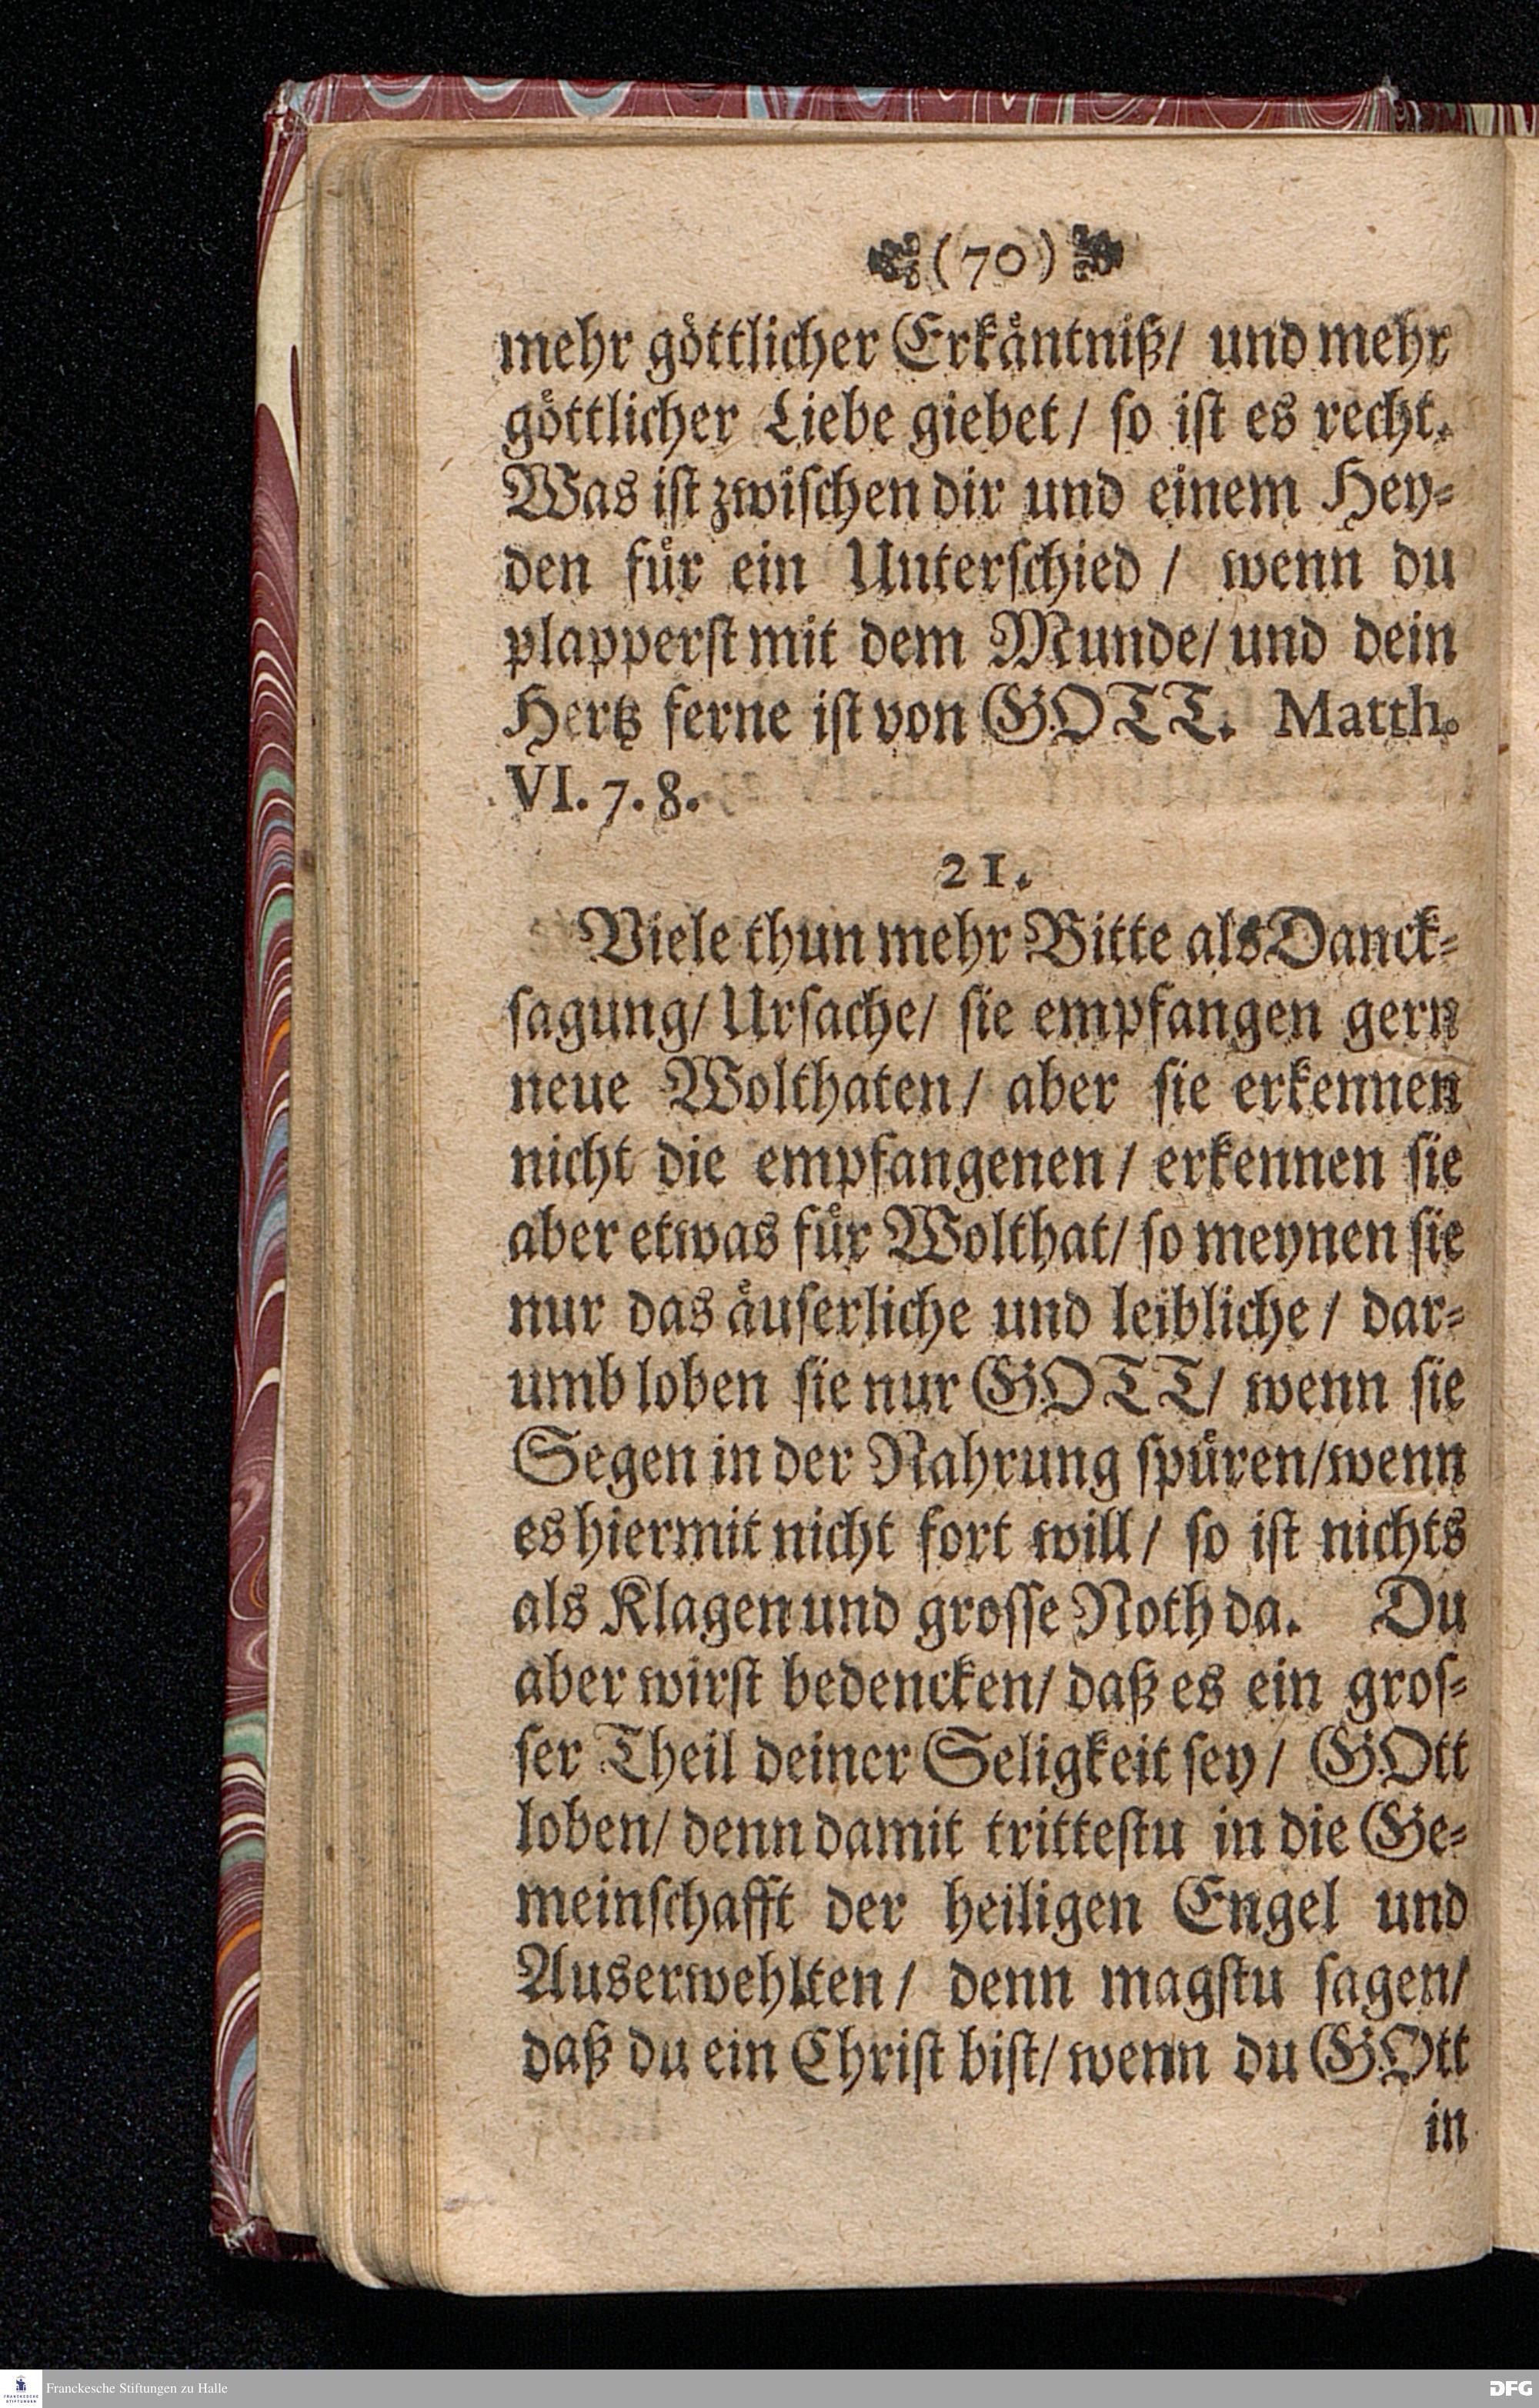 (70)
mehr göttlicher Erkäntniß/ und mehr
göttlicher Liebe giebet/ so ist es recht.
Was ist zwischen dir und einem Hey-
den für ein Unterschied/ wenn du
plapperst mit dem Munde/ und dein
Hertz ferne ist von GOTT. Matth.
VI. 7. 8.
21.
Viele thun mehr Bitte als Danck-
sagung/ Ursache/ sie empfangen gern
neue Wolthaten/ aber sie erkennen
nicht die empfangenen/ erkennen sie
aber etwas für Wolthat/ so meynen sie
nur das äuserliche und leibliche/ dar-
umb loben sie nur GOTT/ wenn sie
Segen in der Nahrung spüren/ wenn
es hiermit nicht fort will/ so ist nichts
als Klagen und grosse Noth da. Du
aber wirst bedencken/ daß es ein gros-
ser Theil deiner Seligkeit sey/ GOtt
loben/ denn damit trittestu in die Ge-
meinschafft der heiligen Engel und
Auserwehlten/ denn magstu sagen/
daß du ein Christ bist/ wenn du GOtt
in
Franckesche Stiftungen zu Halle
DFG